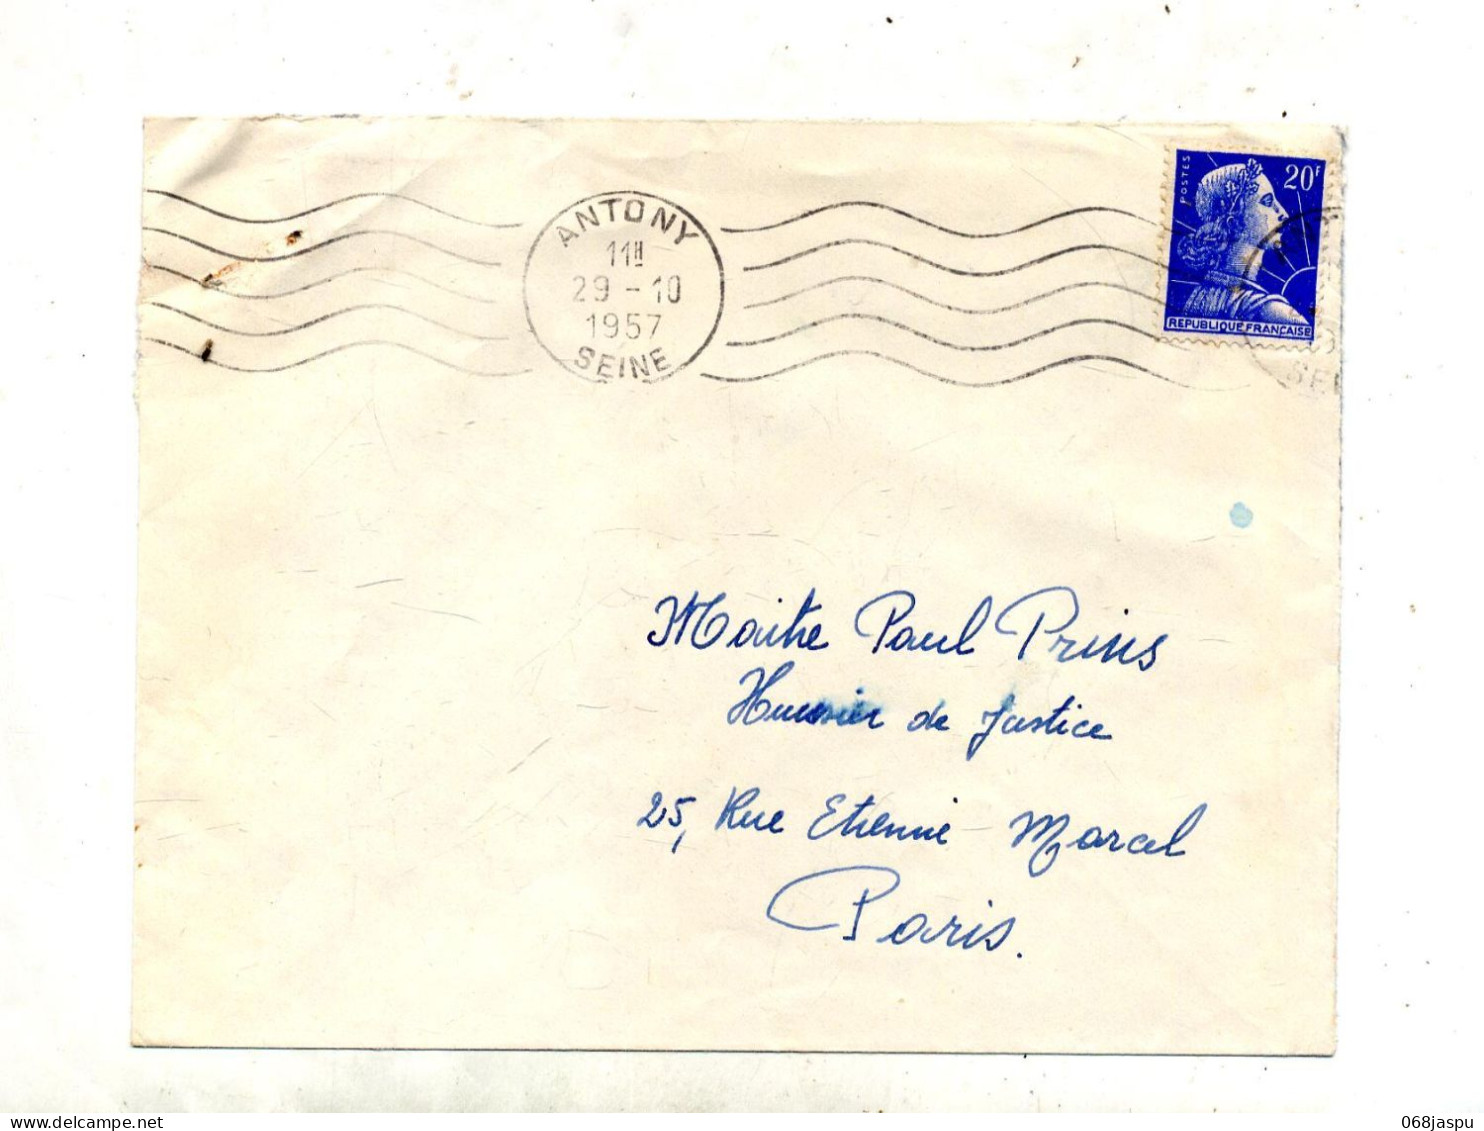 ANTONY
11H
29-10
1957
SEINE
POSTES
20F
REPUBLIQUE FRANÇAISE
Maitre Paul Prins
Huissier de Justice
25, Rue Etienne Marcel
Paris.
delcampe.net
068jaspu